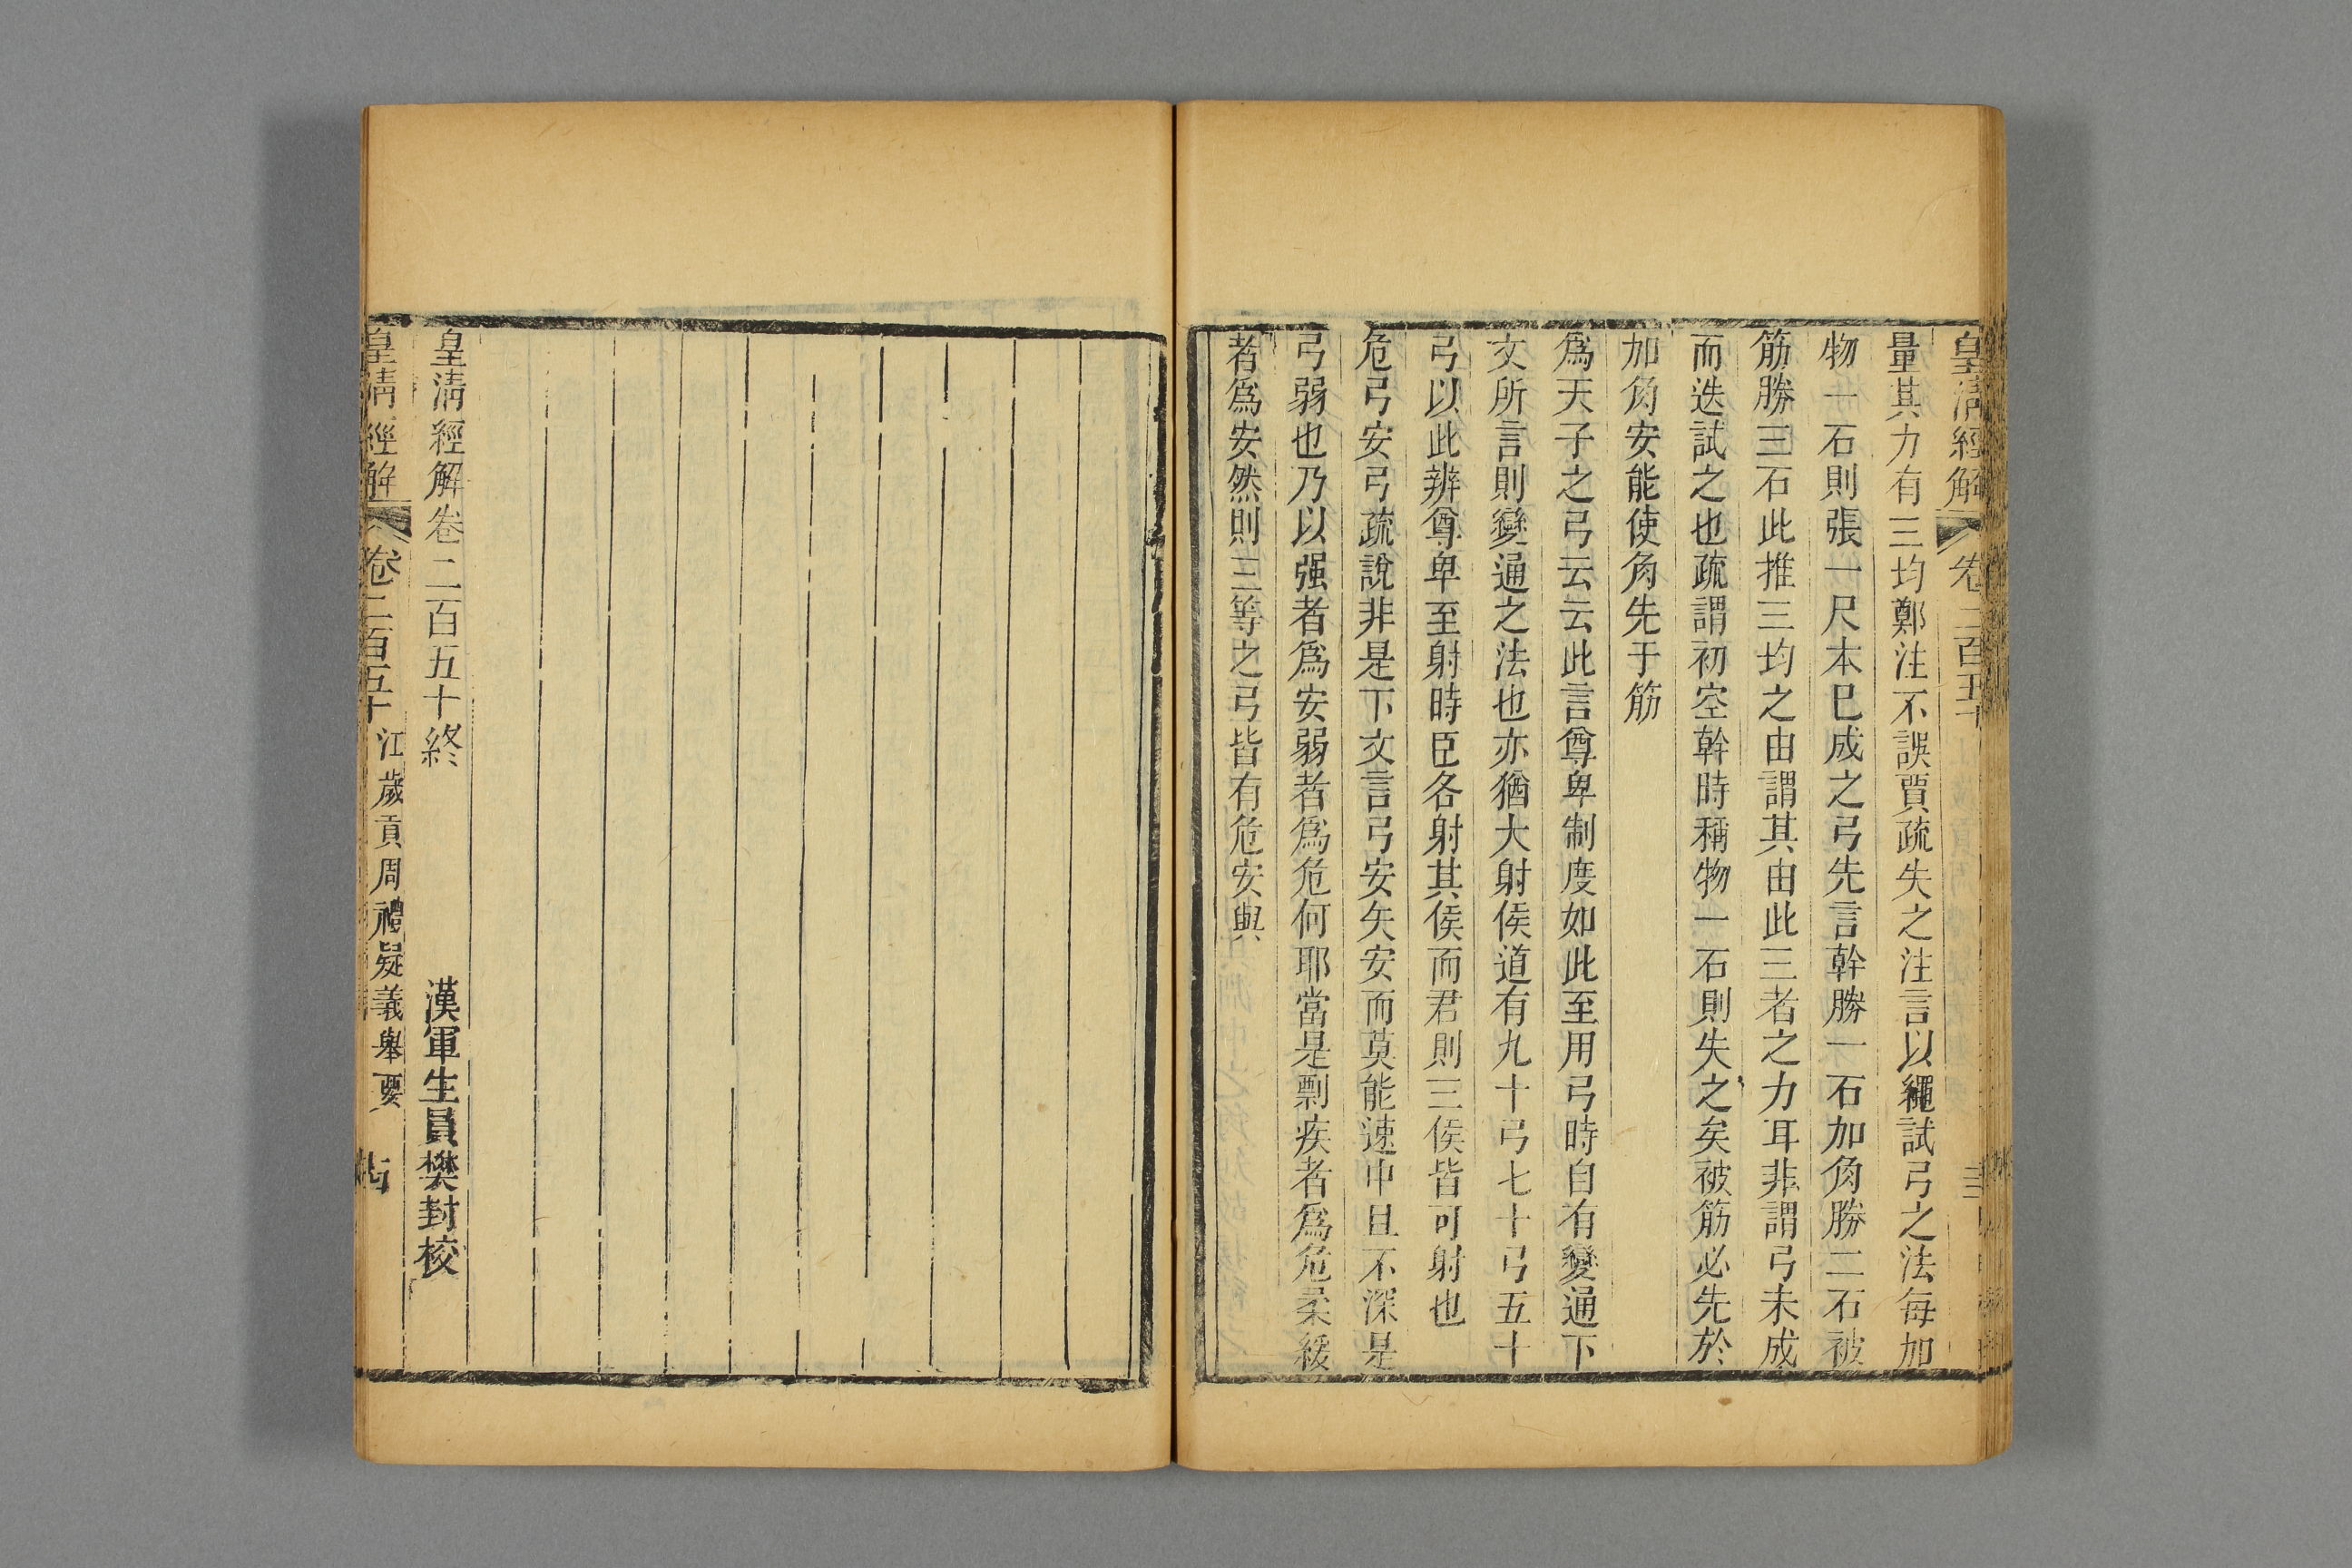 皇清經解 卷二百五十
量其力有三均鄭注不誤賈疏失之注言以繩試弓之法每加
物一石則張一尺本巳成之弓先言幹勝一石加角勝二石被
筋勝三石此推三均之由謂其由此三者之力耳非謂弓未成
而迭試之也疏謂初空幹時稱物一石則失之矣被筋必先於
加角安能使角先于筋
爲天子之弓云云此言尊卑制度如此至用弓時自有變通下
文所言則變通之法也亦猶大射侯道有九十弓七十弓五十
弓以此辨尊卑至射時臣各射其侯而君則三侯皆可射也
危弓安弓疏說非是下文言弓安矢安而莫能速中且不深是
弓弱也乃以强者爲安弱者爲危何耶當是剽疾者爲危柔緩
者爲安然則三等之弓皆有危安與
皇清經解卷二百五十終 漢軍生員樊封校
皇清經解 卷二百五十 江歲貢周禮疑義舉要